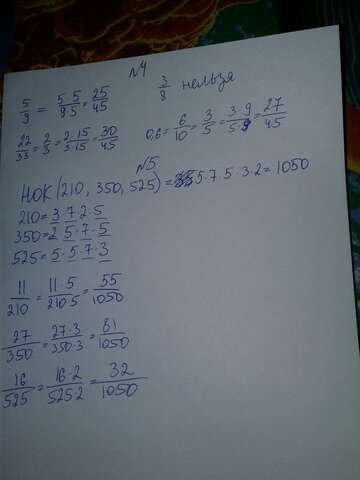 №4
5/9 = 5·5/9·5 = 25/45 3/8 нельзя
22/33 = 2/3 = 2·15/3·15 = 30/45 0,6 = 6/10 = 3/5 = 3·9/5 9 = 27/45
№5
НОК (210, 350, 525) = 5·7 5·3·2 = 1050
210 = 3·7 2·5
350 = 2 5·7·5
525 = 5·5·7·3
11/210 = 11·5/210·5 = 55/1050
27/350 = 27·3/350·3 = 81/1050
16/525 = 16·2/525·2 = 32/1050